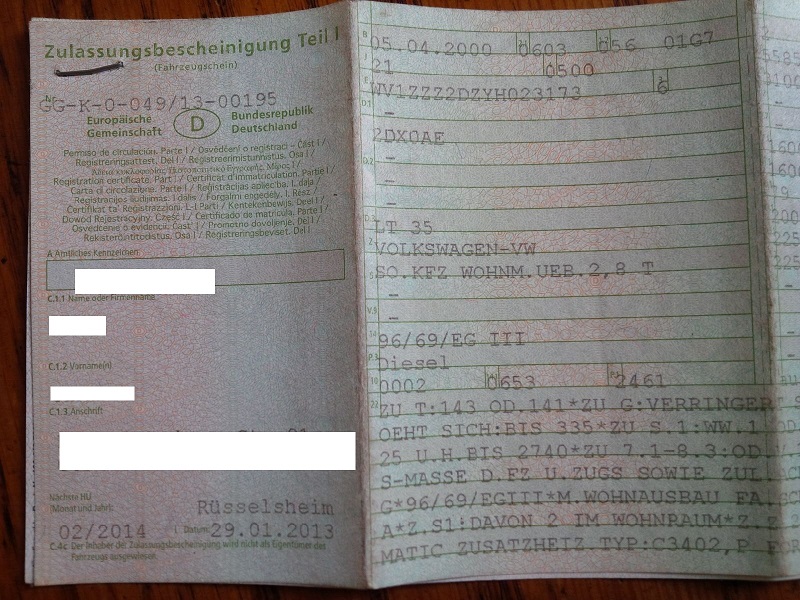 Zulassungsbescheinigung Teil I
(Fahrzeugschein)
Nr.
GG-K-0-049/13-00195
Europäische Gemeinschaft
D
Bundesrepublik Deutschland
Permiso de circulación. Parte I / Osvědčení o registraci – Část I /
Registreringsattest. Del I / Registreerimistunnistus. Osa I /
Άδεια κυκλοφορίας. Μέρος I /
Registration certificate. Part I / Certificat d'immatriculation. Partie I /
Carta di circolazione. Parte I / Reģistrācijas apliecība. I. daļa /
Registracijos liudijimas. I dalis / Forgalmi engedély. I. Rész /
Ċertifikat ta' Reġistrazzjoni. L-I Parti / Kentekenbewijs. Deel I /
Dowód Rejestracyjny. Część I / Certificado de matrícula. Parte I /
Osvedčenie o evidencii. Časť I / Prometno dovoljenje. Del I /
Rekisteröintitodistus. Osa I / Registreringsbeviset. Del I
A Amtliches Kennzeichen
C.1.1 Name oder Firmenname
C.1.2 Vorname(n)
C.1.3 Anschrift
Nächste HU
(Monat und Jahr)
Rüsselsheim
02/2014
Datum:
29.01.2013
C.4c Der Inhaber der Zulassungsbescheinigung wird nicht als Eigentümer des
Fahrzeugs ausgewiesen.
B 05.04.2000 0603 056 01G7
J 21 0500
E WV1ZZZ2DZYH023173 6
D.1 –
2DX0AE
–
D.2 –
–
D.3 LT 35
2 VOLKSWAGEN-VW
5 SO.KFZ WOHNM.UEB.2,8 T
–
V.9 –
14 96/69/EG III
P.3 Diesel
10 0002 0653 2461
22 ZU T:143 OD.141*ZU G:VERRINGER
OEHT SICH:BIS 335*ZU S.1:WW.1
25 U.H.BIS 2740*ZU 7.1-8.3:OD.
S-MASSE D.FZ U.ZUGS SOWIE ZUL.
G*96/69/EGIII*M.WOHNAUSBAU FA
A*Z.S1:DAVON 2 IM WOHNRAUM*Z.
MATIC ZUSATZHEIZ.TYP:C3402,P